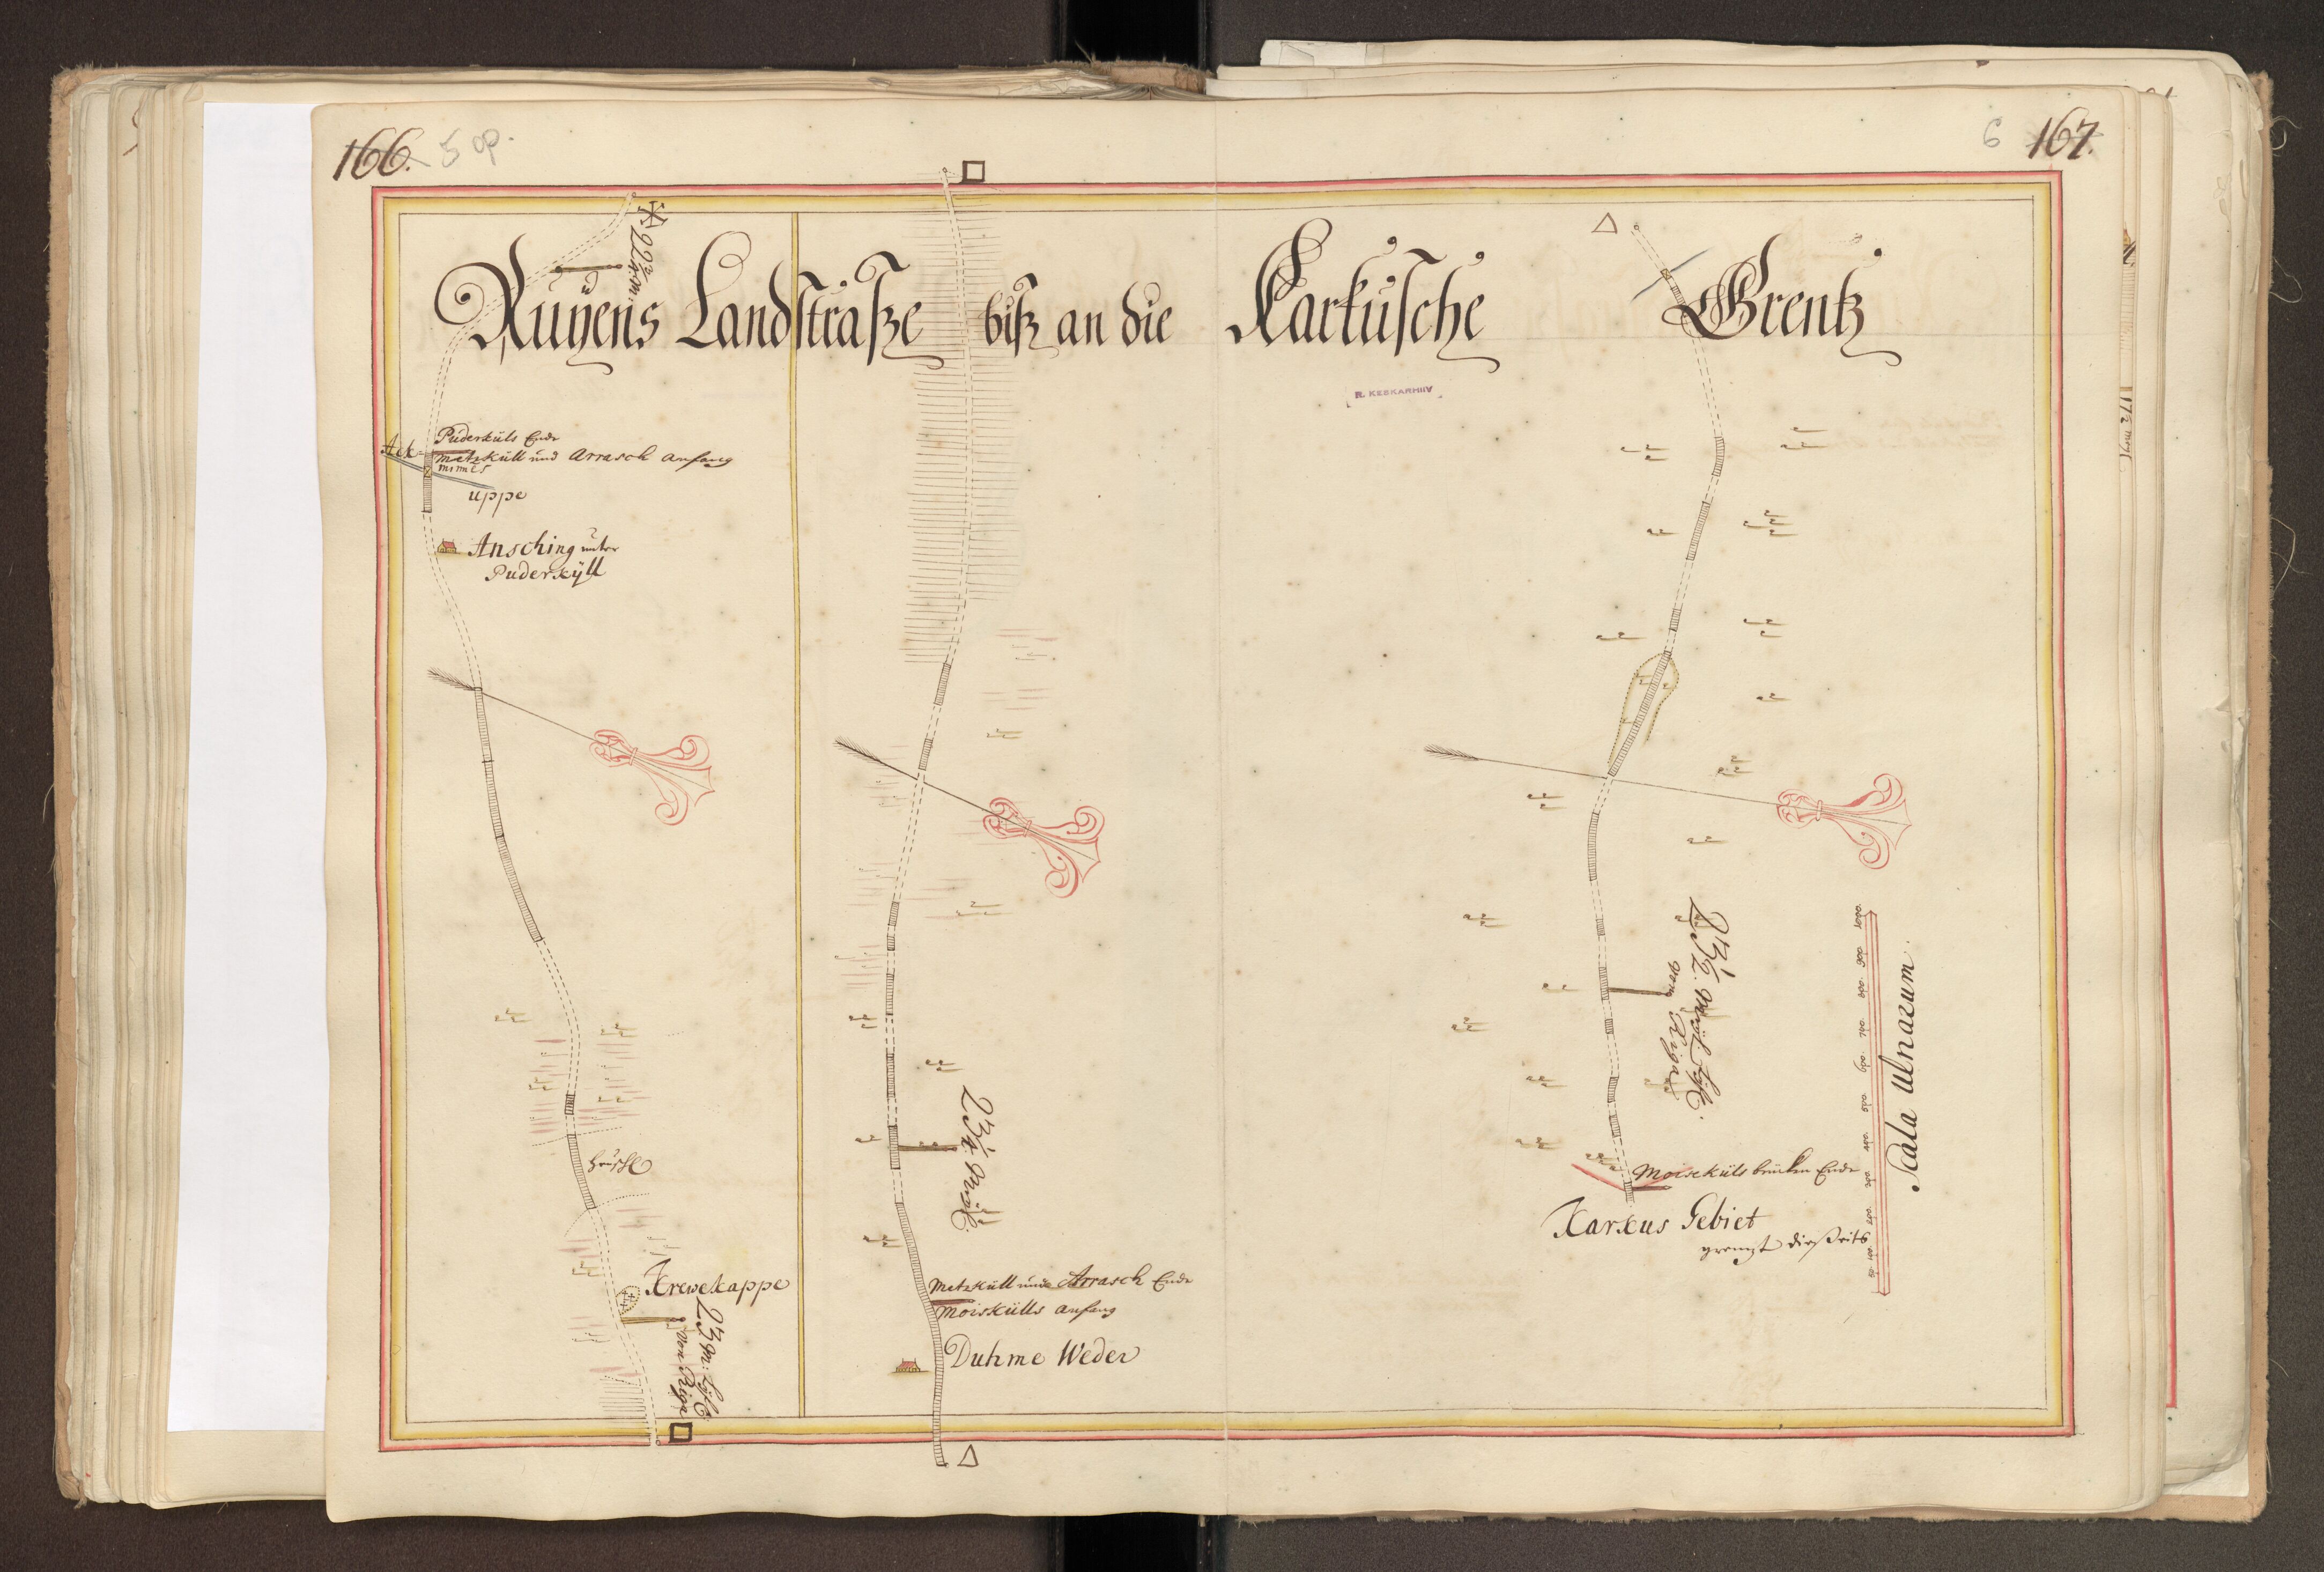 166. 5 op.
6 167.
Ruyens Landstraße biß an die Karkusche Grentz
R. KESKARHIIV
22¾ von
Puderküls Ende
Metzküll und Arrasch anfang
Ack-
mines
uppe
Ansching unter
Puderkÿll
Krewekappe
23 M:
von Riga
23¼ Meil
Metzküll und Arrasch Ende
Moiskülls anfang
Duhme Weder
23½ Meil
von Riga
Moiseküls brücken Ende
Karkus Gebiet
grenzt dießeits
Scala Ulnarum.
50. 100. 200. 300. 400. 500. 600. 700. 800. 900. 1000.